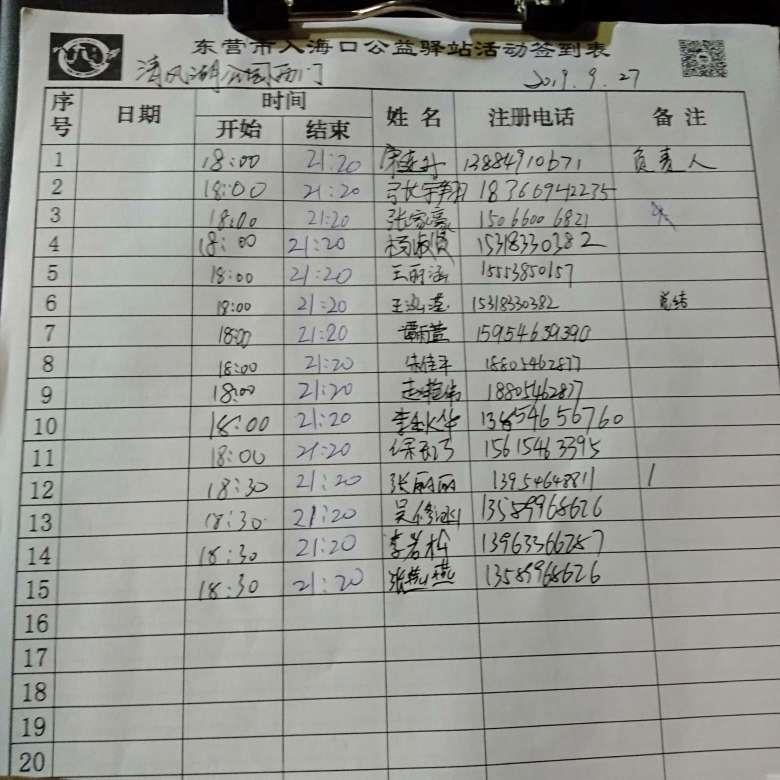 东营市入海口公益驿站活动签到表
清风湖公园西门 2019.9.27
序号 日期 时间 开始 结束 姓名 注册电话 备注
1 18:00 21:20 13884910671 负责人
2 18:00 21:20 张宇翔 18366942235
3 18:00 21:20 张家豪 15066006821
4 18:00 21:20 杨淑贤 15318330382
5 18:00 21:20 王雨涵 15553850157
6 18:00 21:20 15318330382 总结
7 18:00 21:20 15954639390
8 18:00 21:20 宋佳平 18805462877
9 18:00 21:20 18805462877
10 18:00 21:20 李金华 13854656760
11 18:00 21:20 15615463395
12 18:30 21:20 张丽丽 13954648811
13 18:30 21:20 13589968626
14 18:30 21:20 李若松 13963366287
15 18:30 21:20 张燕燕 13589968626
16
17
18
19
20